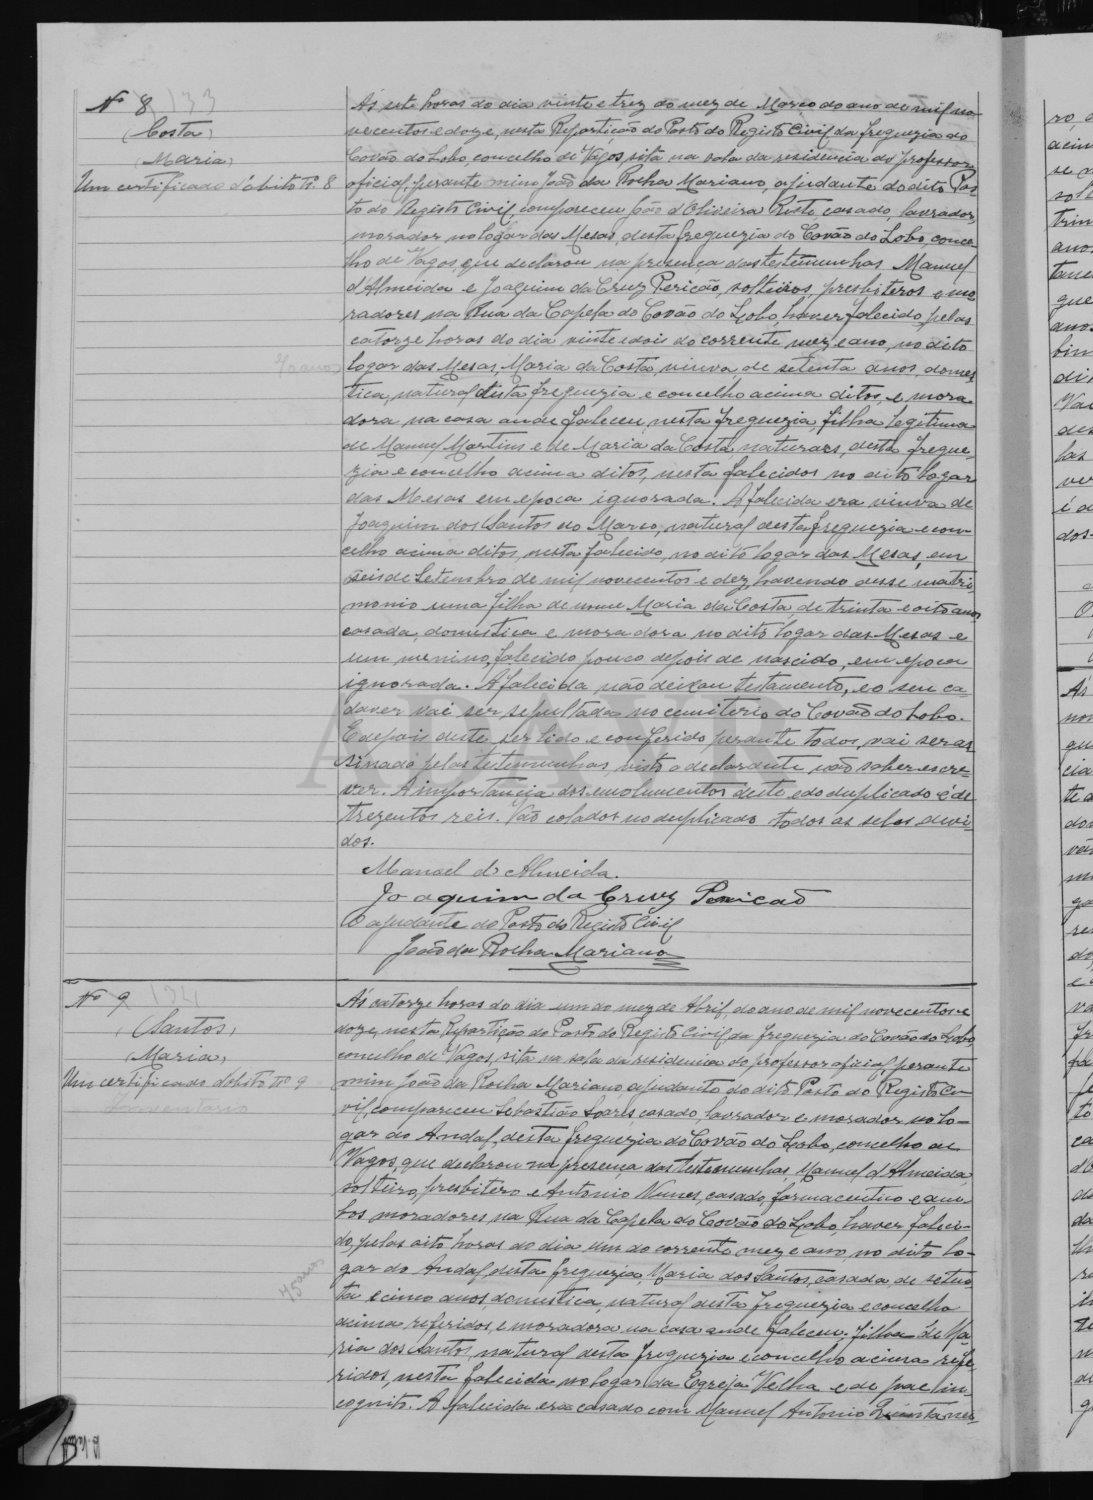 Nº 8 133
(Costa)
(Maria)
Um certificado d'óbito nº 8
Ás sete horas do dia vinte e trez do mez de Março do ano de mil no-
vecentos e doze, nesta Repartição do Posto do Registo Civil da freguezia do
Covão do Lobo, concelho de Vagos, sita na sala da residencia do professor
oficial, perante mim João da Rocha Mariano, ajudante do dito Pos-
to do Registo Civil, compareceu João d'Oliveira Rusto, casado, lavrador,
morador no logar das Mesas, desta freguezia do Covão do Lobo, conce-
lho de Vagos, que declarou na presença das testemunhas Manuel
d'Almeida e Joaquim da Cruz Pericão, solteiros, presbiteros e mo-
radores na Rua da Capela do Covão do Lobo, haver falecido, pelas
catorze horas do dia vinte e dois do corrente mez e ano, no dito
70 anos
logar das Mesas, Maria da Costa, viuva, de setenta anos, domes-
tica, natural desta freguezia e concelho acima ditos, e mora-
dora na casa onde faleceu, nesta freguezia, filha legitima
de Manuel Martins e de Maria da Costa, naturaes, desta fregue-
zia e concelho acima ditos, nesta falecidos no dito logar
das Mesas em epoca ignorada. A falecida era viuva de
Joaquim dos Santos do Marco, natural desta freguezia e con-
celho acima ditos, nesta falecido, no dito logar das Mesas, em
seis de Setembro de mil novecentos e dez, havendo desse matri-
monio uma filha de nome Maria da Costa, de trinta e oito anos,
casada, domestica e moradora no dito logar das Mesas e
um menino, falecido pouco depois de nascido, em epoca
ignorada. A falecida não deixou testamento, e o seu ca-
daver vai ser sepultado no cemiterio do Covão do Lobo.
E depois deste ser lido e conferido perante todos, vai ser as-
sinado pelas testemunhas, visto o declarante não saber escre-
ver. A importancia dos emolumentos deste e do duplicado é de
trezentos reis. Vão colados no duplicado todos os selos devi-
dos.
Manuel d'Almeida.
Joaquim da Cruz Pericaõ
O ajudante do Posto do Registo Civil
João da Rocha Mariano
Nº 9 134
(Santos)
(Maria)
Um certificado d'obito nº 9
Ás catorze horas do dia um do mez de Abril, do ano de mil novecentos e
doze, nesta Repartição do Posto do Registo Civil da freguezia do Covão do Lobo,
concelho de Vagos, sita na sala da residencia do professor oficial, perante
mim João da Rocha Mariano, ajudante do dito Posto do Registo Ci-
vil, compareceu Sebastião Soares, casado, lavrador e morador no lo-
gar do Andal, desta freguezia do Covão do Lobo, concelho de
Vagos, que declarou na presença das testemunhas, Manuel d'Almeida,
solteiro, presbitero e Antonio Nunes, casado, farmaceutico e am-
bos moradores, na Rua da Capela do Covão do Lobo, haver faleci-
do, pelas oito horas do dia um do corrente mez e ano, no dito lo-
75 anos
gar do Andal, desta freguezia, Maria dos Santos, casada de seten-
ta e cinco anos, domestica, natural desta freguezia e concelho
acima referidos, e moradora na casa onde faleceu, filha de Ma-
ria dos Santos, natural desta freguezia e concelho acima refe-
ridos, nesta falecida no logar da Egreja Velha e de pae in-
cognito. A falecida era casada com Manuel Antonio